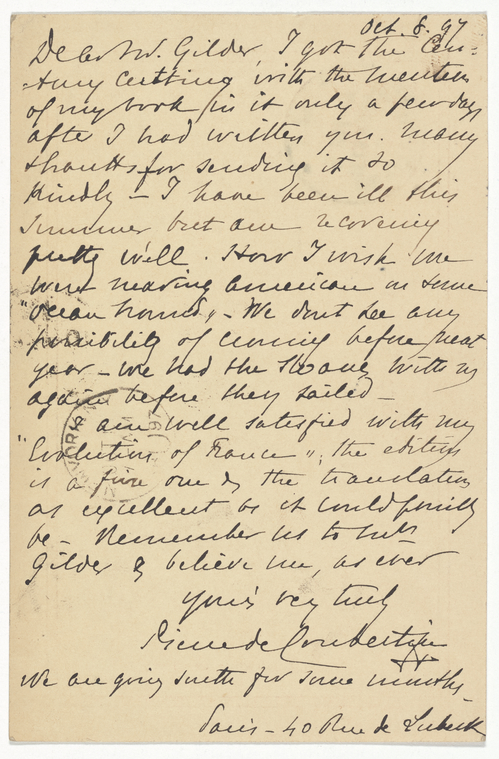 Oct. 8. 97
Dear Mr. Gilder, I got the Cen-
-tury cutting with the mention
of my book in it only a few days
after I had written you. Many
thanks for sending it so
kindly – I have been ill this
summer but am recovering
pretty well. How I wish we
were nearing American on some
"ocean hound" – We dont see any
possibility of coming before next
year – we had the Sloanes with us
again before they sailed –
I am well satisfied with my
"Evolution of France"; the edition
is a fine one & the translation
as excellent as it could possibly
be – Remember us to Mrs
Gilder & believe me, as ever
yours very truly
Pierre de Coubertin
We are going south for some months –
Paris – 40 Rue de Lubeck